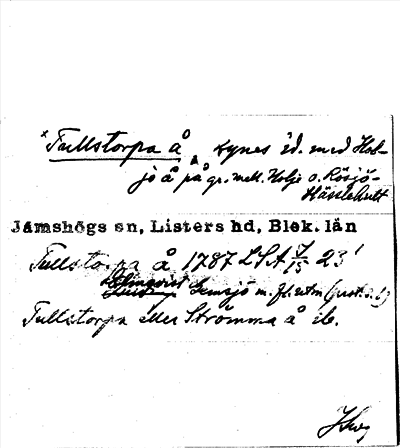 * Tullstorpa å, synes id. med Hol-
jeå på gr. mell. Holje o. Rösjö-
Hässlehult
Jämshögs sn, Listers hd, Blek. län
Tullstorpa å 1787 LSA 7/15 23'
Gemsjö m. fl. utm
Tullstorpa eller Strömma å ib.